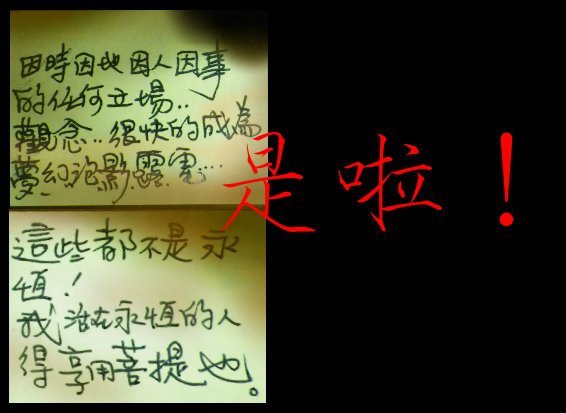 因時因地因人因事
的任何立場..
觀念..很快的成為
夢幻泡影露電...
這些都不是永
恆！
我活在永恆的人
得享用菩提也。
是啦！